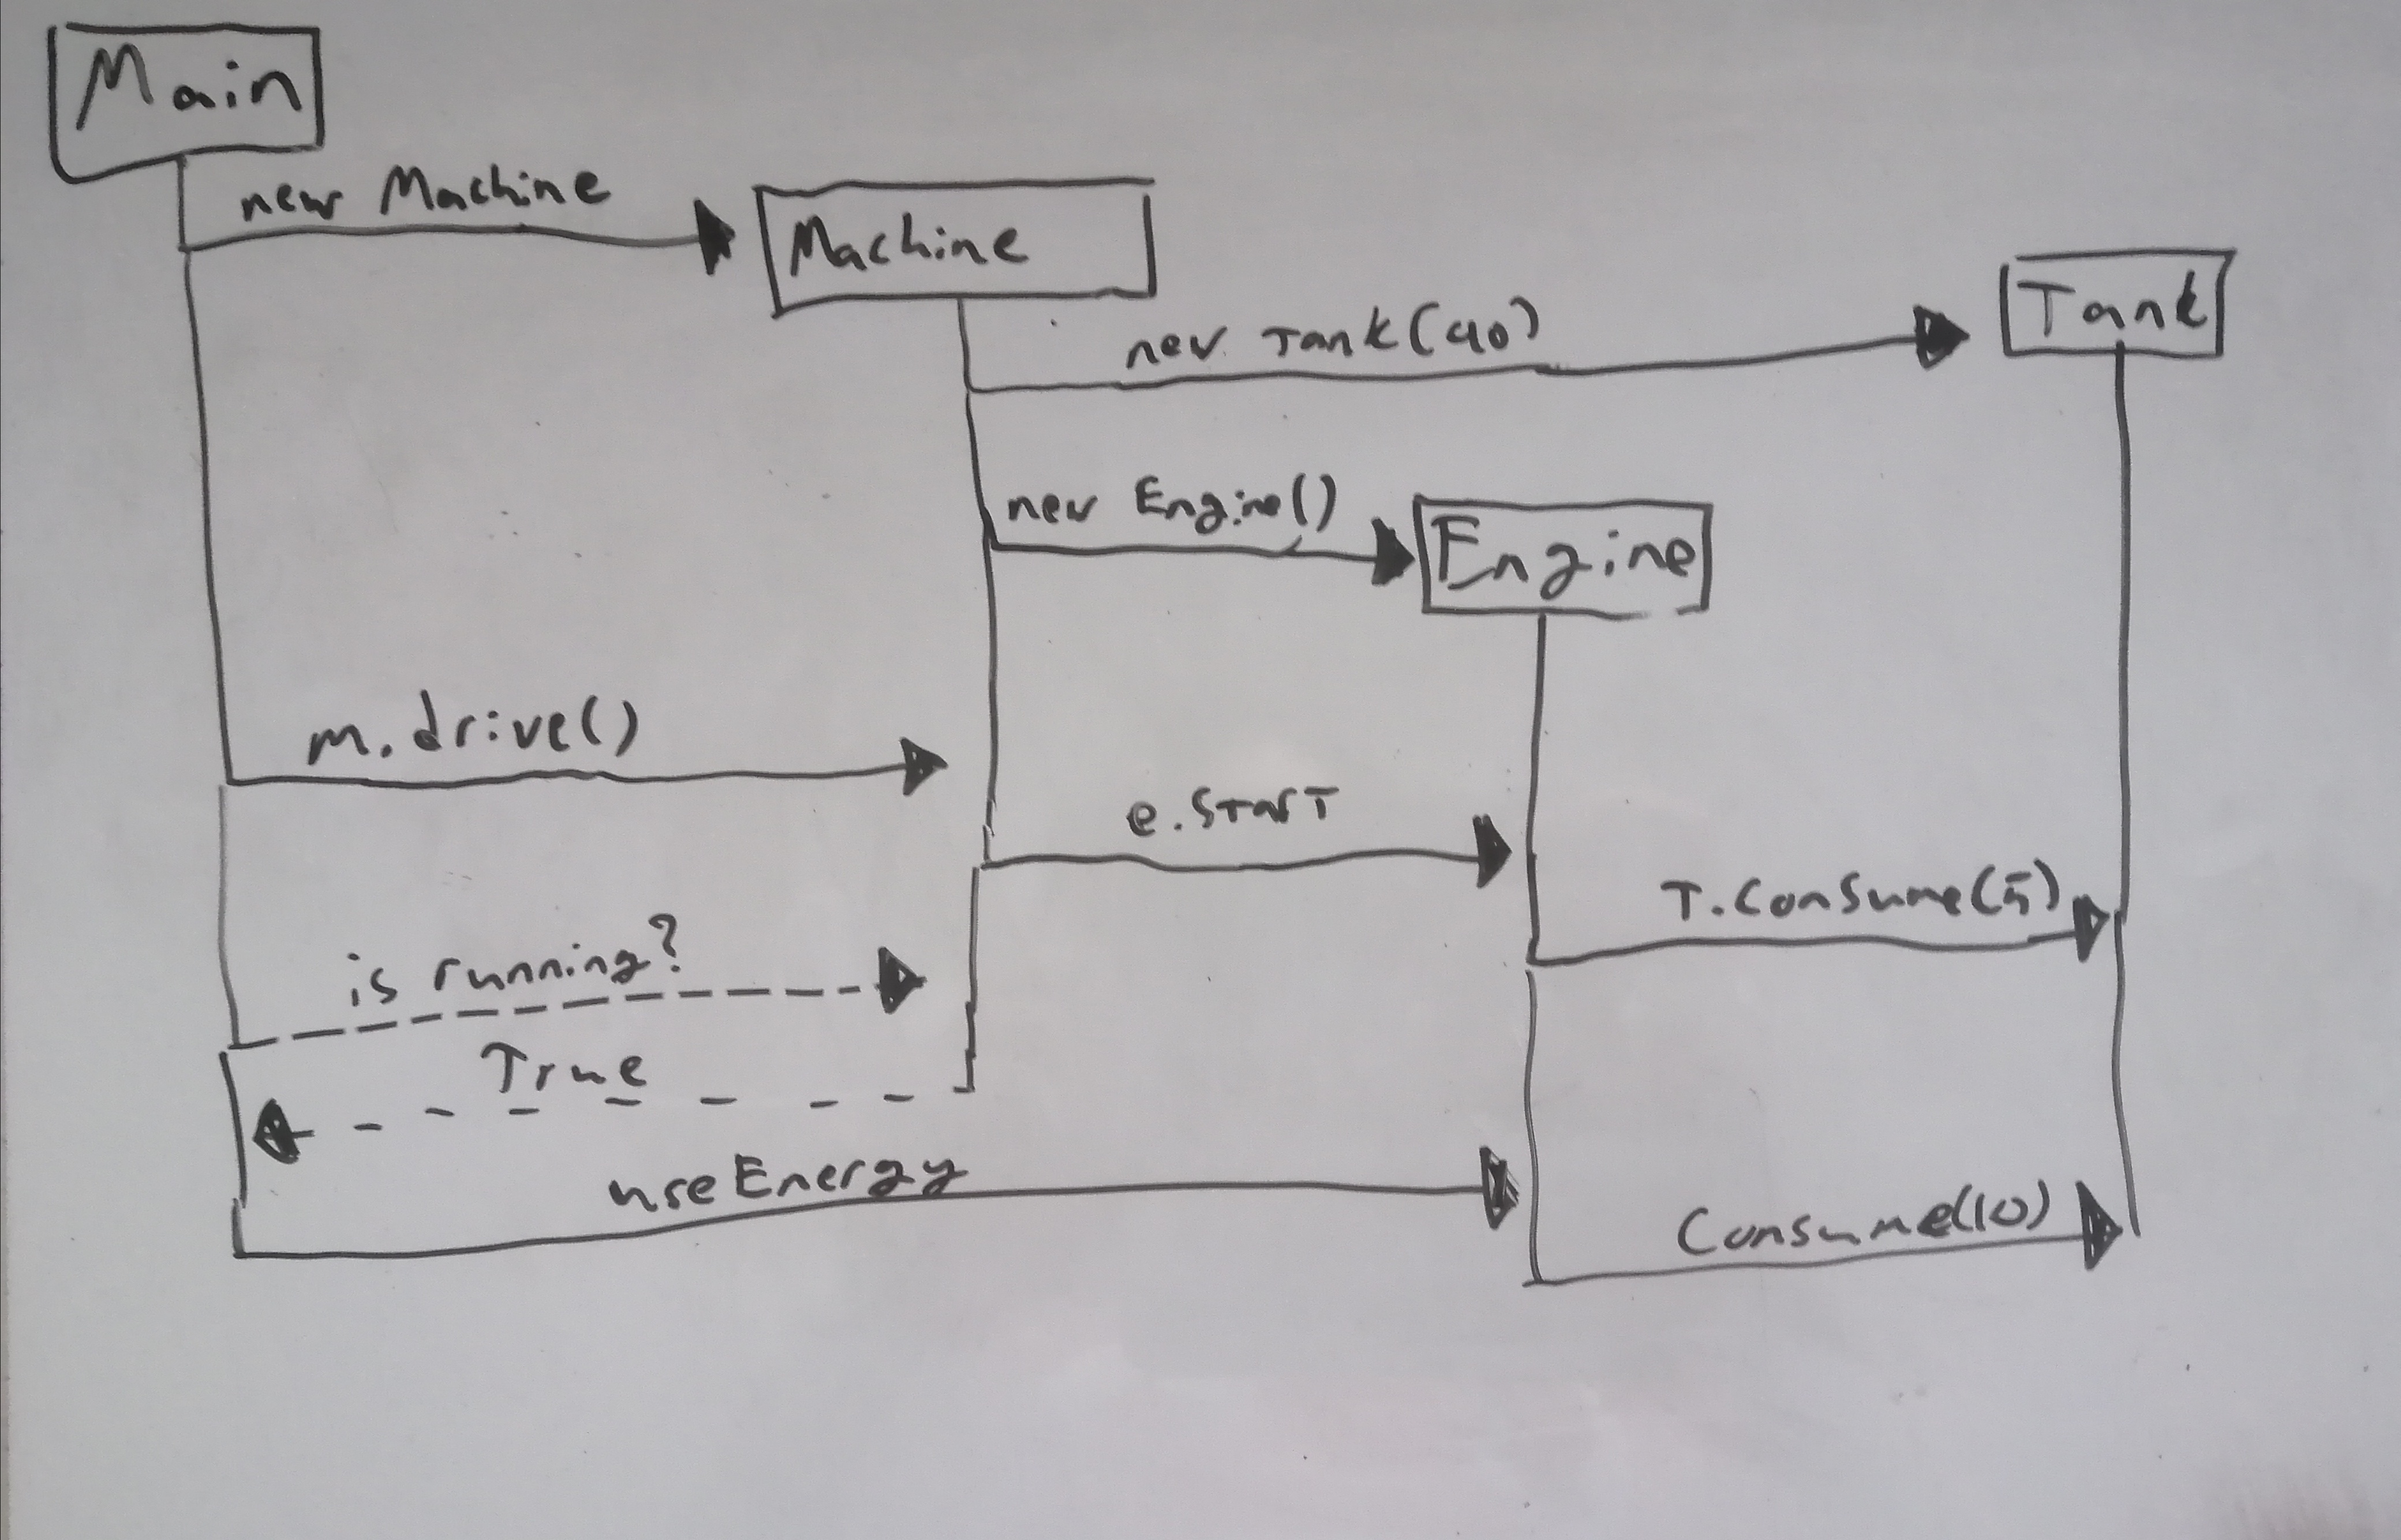 Main
new Machine
Machine
new Tank(40)
Tank
new Engine()
Engine
m.drive()
e.start
T.Consume(5)
is running?
True
useEnergy
Consume(10)